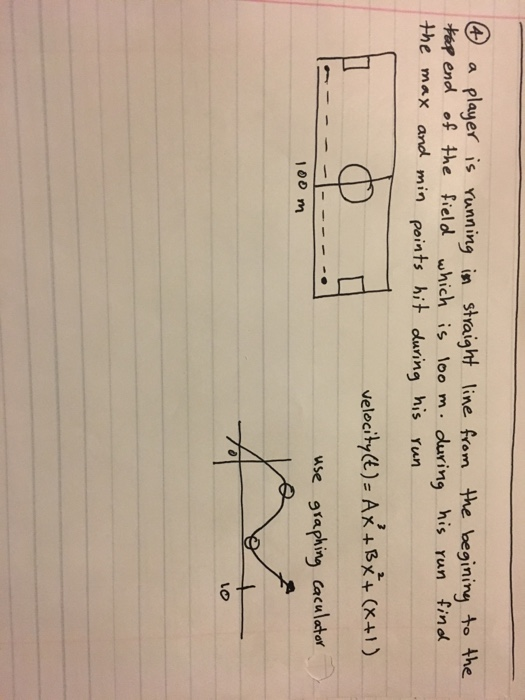 ④ a player is running in straight line from the begining to the
end of the field which is 100 m. during his run find
the max and min points hit during his run
velocity(t) = Ax³ + Bx² + (x+1)
use graphing caculator
100 m
0
10